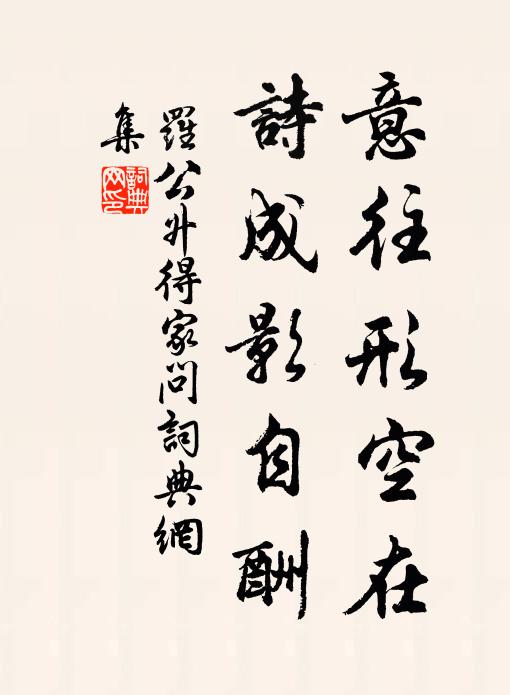 意往形空在
詩成影自酬
羅公升得家問詞典網
集
詞典
网印